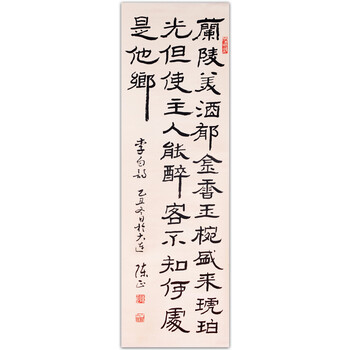 蘭陵美酒郁金香玉椀盛来琥珀
光但使主人能醉客不知何處
是他鄉
李白詩 乙丑冬日於大連 陳正